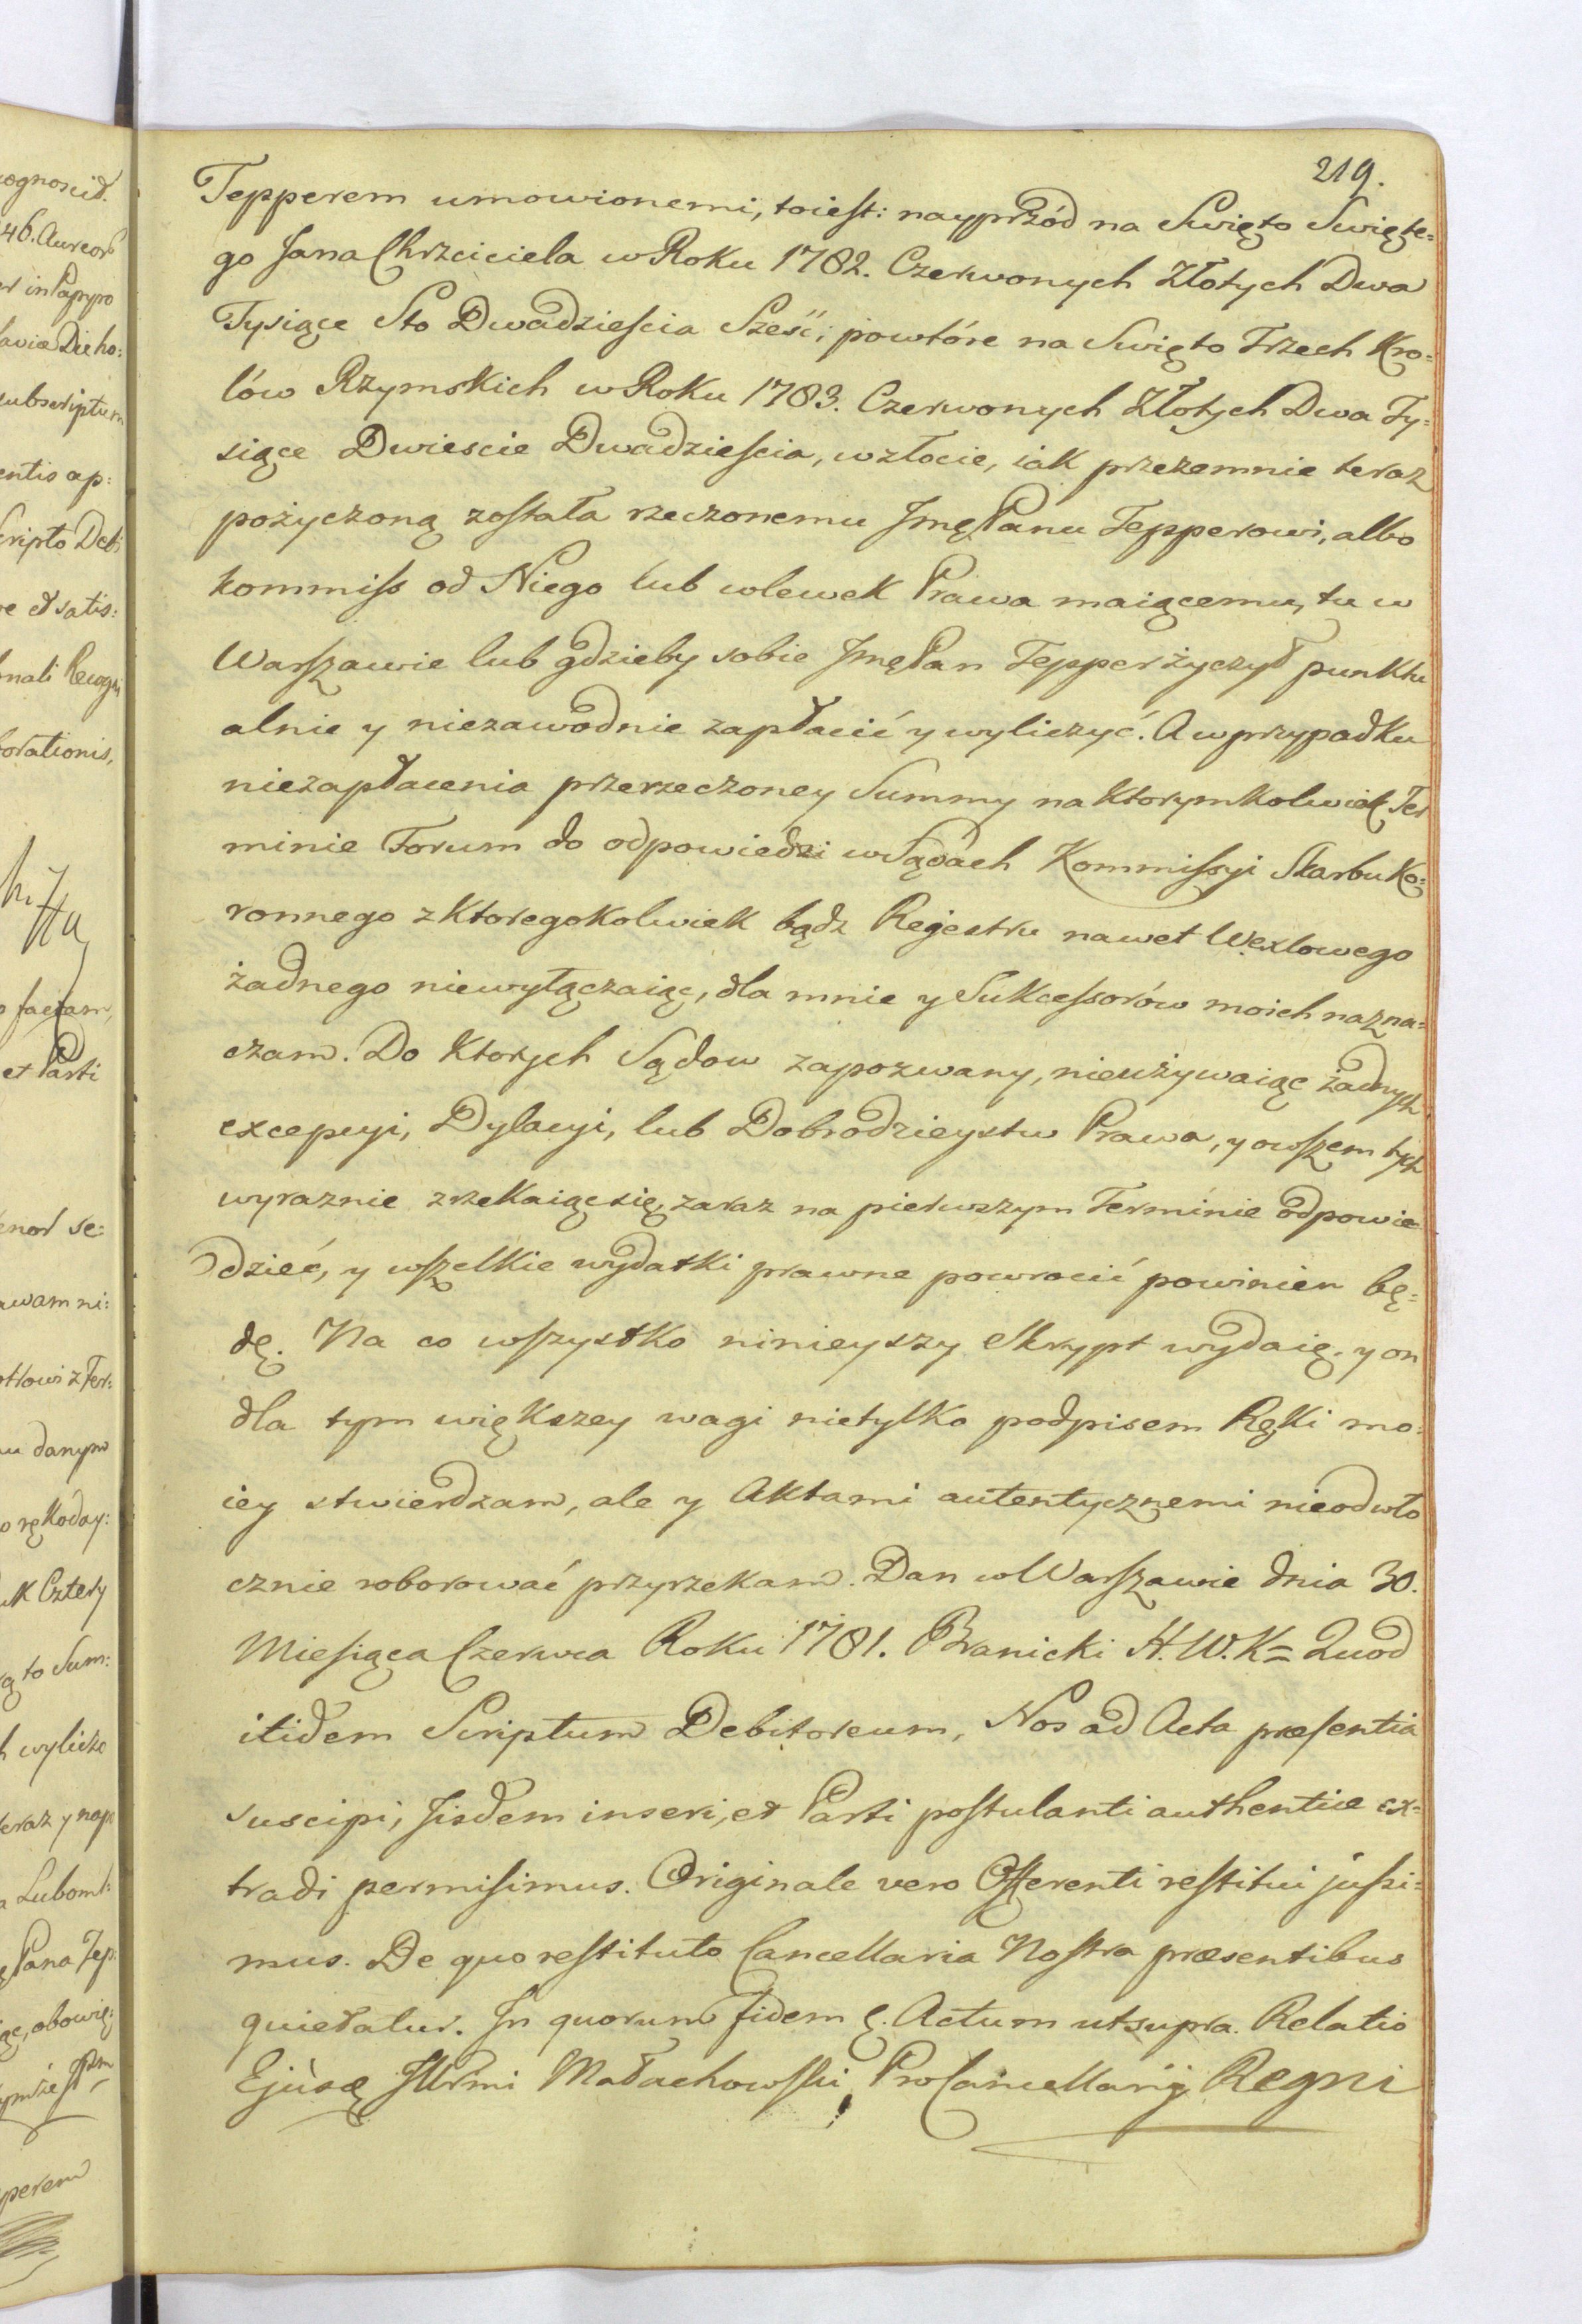 219.
Tepperem umowionemi, toiest: nayprzód na Swięto Swięte=
go Jana Chrzciciela w Roku 1782. Czerwonych Złotych Dwa
Tysiące Sto Dwadzieścia Sześć; powtóre na Swięto Trzech Kro=
lów Rzymskich w Roku 1783. Czerwonych Złotych Dwa Ty=
siące Dwiescie Dwadzieścia, w złocie, iak przezemnie teraz
pożyczoną została rzeczonemu Jmę Panu Tepperowi, albo
kommiss od Niego lub wlewek Prawa maiącemu, tu w
Warszawie lub gdzieby sobie Jmę Pan Tepper życzył punktu
alnie y niezawodnie zapłacić y wyliczyć. A w przypadku
niezapłacenia przerzeczoney Summy na ktorymkolwiek Ter
minie Forum do odpowiedzi w Sądach Kommissyi Skarbu Ko=
ronnego z ktoregokolwiek bądz Rejestru nawet Wexlowego
żadnego niewyłączaiąc, dla mnie y Sukcessorów moich nazna=
czam. Do ktorych Sądow zapozwany, nieużywaiąc żadnych
excepcyi, Dylacyi, lub Dobrodzieystw Prawa, y owszem tych
wyraznie zrzekaiąc się, zaraz na pierwszym Terminie odpowie
dzieć, y wszelkie wydatki prawne powrocić powinien bę=
dę. Na co wszystko ninieyszy Skrypt wydaię, y on
dla tym większey wagi nietylko podpisem Ręki mo=
iey stwierdzam, ale y Aktami autentycznemi nieodwło
cznie roborować przyrzekam. Dan w Warszawie dnia 30.
Miesiąca Czerwca Roku 1781. Branicki H. W. K = Quod
itidem Scriptum Debitoreum, Nos ad Acta præsentia
suscipi, Jisdem inseri, et Parti postulanti authentice ex=
tradi permisimus. Originale vero Offerenti restitui jussi=
mus. De quo restituto Cancellaria Nostra præsentibus
quietatur. In quorum fidem &. Actum ut supra. Relatio
Ejusdę Illrmi Małachowski ProCancellarij Regni